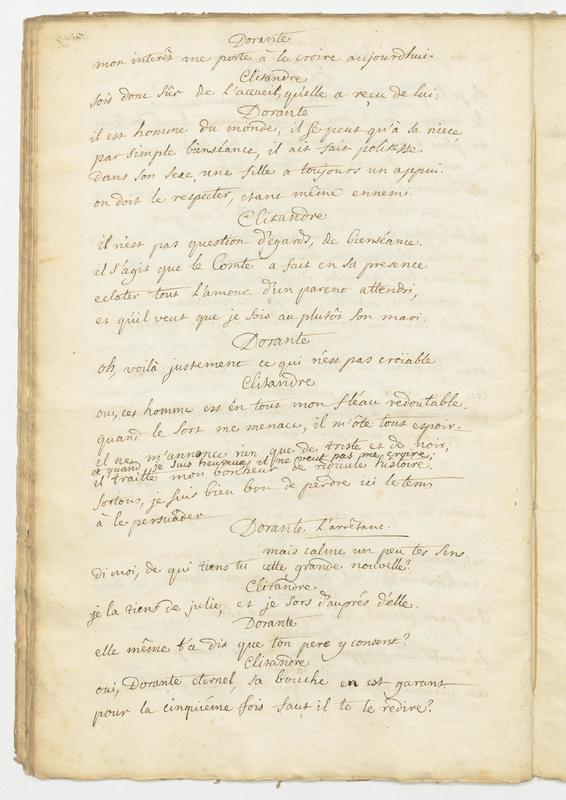 Dorante
mon interêt me porte à le croire aujourdhui.
Clitandre
sois donc sûr de l'accueil, qu'elle a reçu de lui.
Dorante
il est homme du monde, il se peut qu'à sa niece
par simple bienséance, il ait fait politesse
dans son sexe une fille a toujours un appui.
on doit le respecter, etant même ennemi.
Clitandre
il n'est pas question d'egards, de bienséance.
il s'agit que le Comte a fait en sa presence
eclater tout l'amour d'un parent attendri,
et qu'il veut que je sois au plutôt son mari.
Dorante
oh, voilà justement ce qui n'est pas croiable
Clitandre
oui, cet homme est en tout mon fléau redoutable.
quand le sort me menace, il m'ôte tout espoir.
il ne m'annonce rien que de triste et de noir,
et quand je suis heureux, il ne veut pas me croire,
il traitte mon bonheur de ridicule histoire.
sortons, je suis bien bon de perdre ici le tems
à le persuader
Dorante l'arrêtant.
mais calme un peu tes sens.
di moi, de qui tiens tu cette grande nouvelle?
Clitandre
je la tiens de julie, et je sors d'auprés d'elle.
Dorante
elle même t'a dit que ton pere y consent?
Clitandre
oui, Dorante eternel, sa bouche en est garant
pour la cinquiéme fois faut il te le redire?